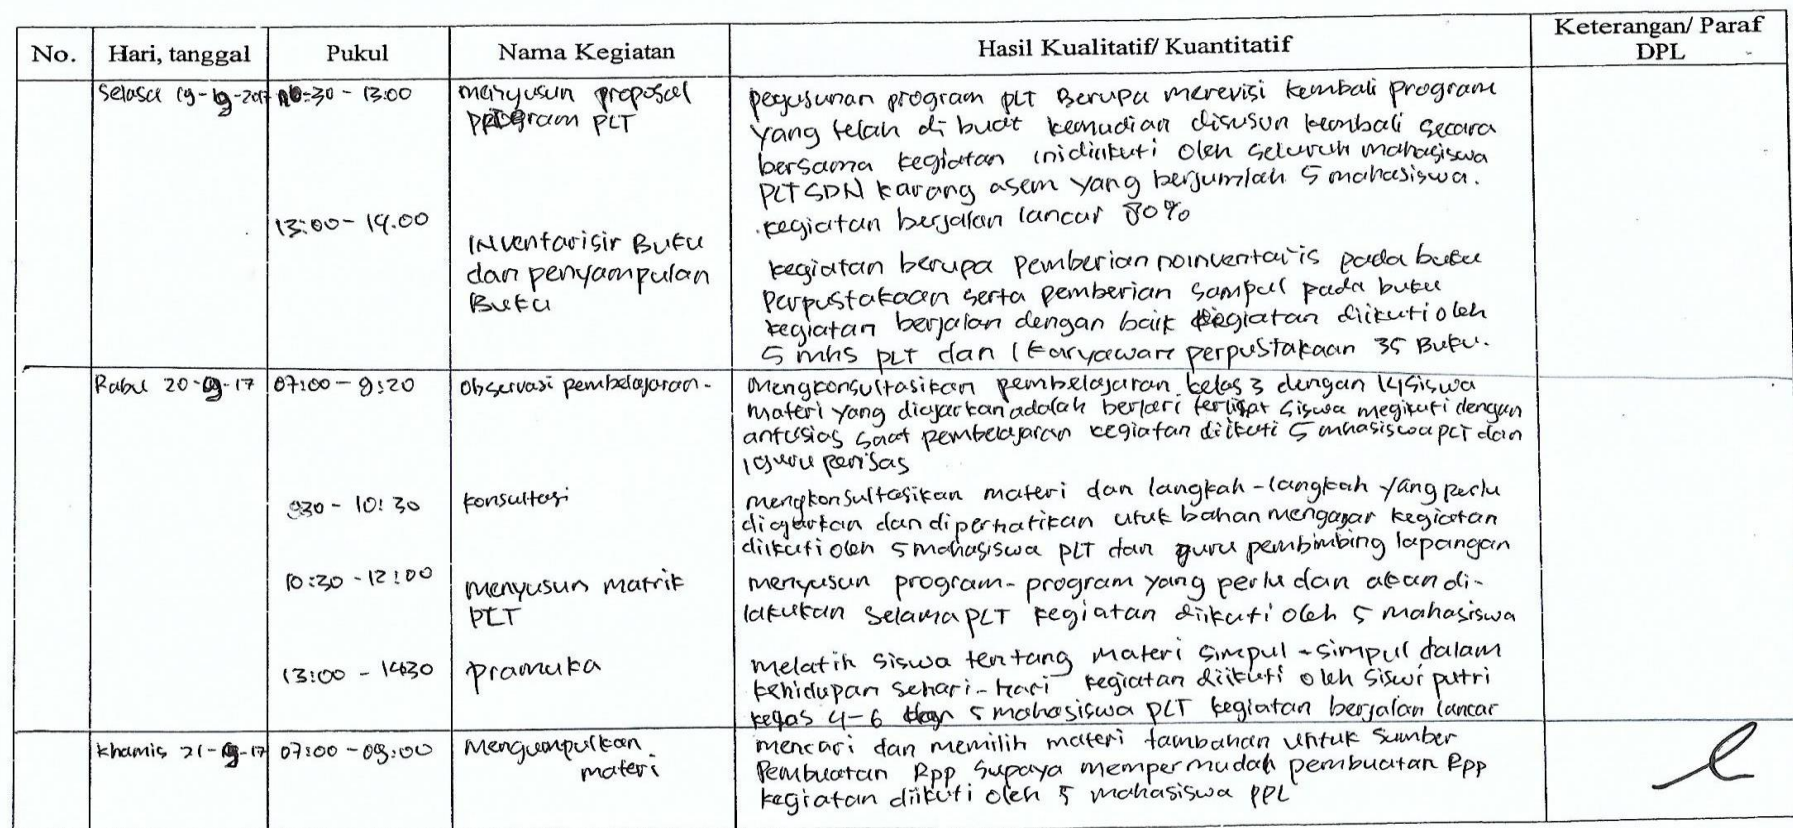 No. Hari, tanggal Pukul Nama Kegiatan Hasil Kualitatif/ Kuantitatif Keterangan/ Paraf DPL
Selasa 19-9-2017 10:30 - 13:00 menyusun proposal
program PLT
pegusunan program PLT Berupa merevisi kembali program
yang telah di buat kemudian disusun kembali secara
bersama kegiatan inidiikuti oleh seluruh mahasiswa
PLT SDN karang asem yang berjumlah 5 mahasiswa.
kegiatan berjalan lancar 80%
13:00 - 14.00 INventarisir Buku
dan penyampulan
Buku
kegiatan berupa pemberian noinventaris pada buku
Perpustakaan serta pemberian sampul pada buku
kegiatan berjalan dengan baik kegiatan diikuti oleh
5 mhs PLT dan 1 karyawan perpustakaan 35 Buku.
Rabu 20-09-17 07:00 - 9:20 observasi pembelajaran-
Mengkonsultasikan pembelajaran kelas 3 dengan 14 siswa
materi yang diajarkan adalah berlari terlihat siswa megikuti dengan
antusias saat pembelajaran kegiatan diikuti 5 mhasiswa PLT dan
1 guru penjsas
930 - 10:30 konsultasi
mengkonsultasikan materi dan langkah-langkah yang perlu
diajarkan dan diperhatikan utuk bahan mengajar kegiatan
diikuti oleh 5 mahasiswa PLT dan guru pembimbing lapangan
10:30 - 12:00 menyusun matrik
PLT
menyusun program-program yang perlu dan akan di-
lakukan selama PLT kegiatan diikuti oleh 5 mahasiswa
13:00 - 1430 pramuka
melatih siswa tentang materi simpul-simpul dalam
kehidupan sehari-hari kegiatan diikuti oleh siswi putri
kelas 4-6 dan 5 mahasiswa PLT kegiatan berjalan lancar
khamis 21-9-17 07:00 - 09:00 Mengumpulkan
materi
mencari dan memilih materi tambahan untuk sumber
Pembuatan Rpp supaya mempermudah pembuatan Rpp
kegiatan diikuti oleh 5 mahasiswa PPL